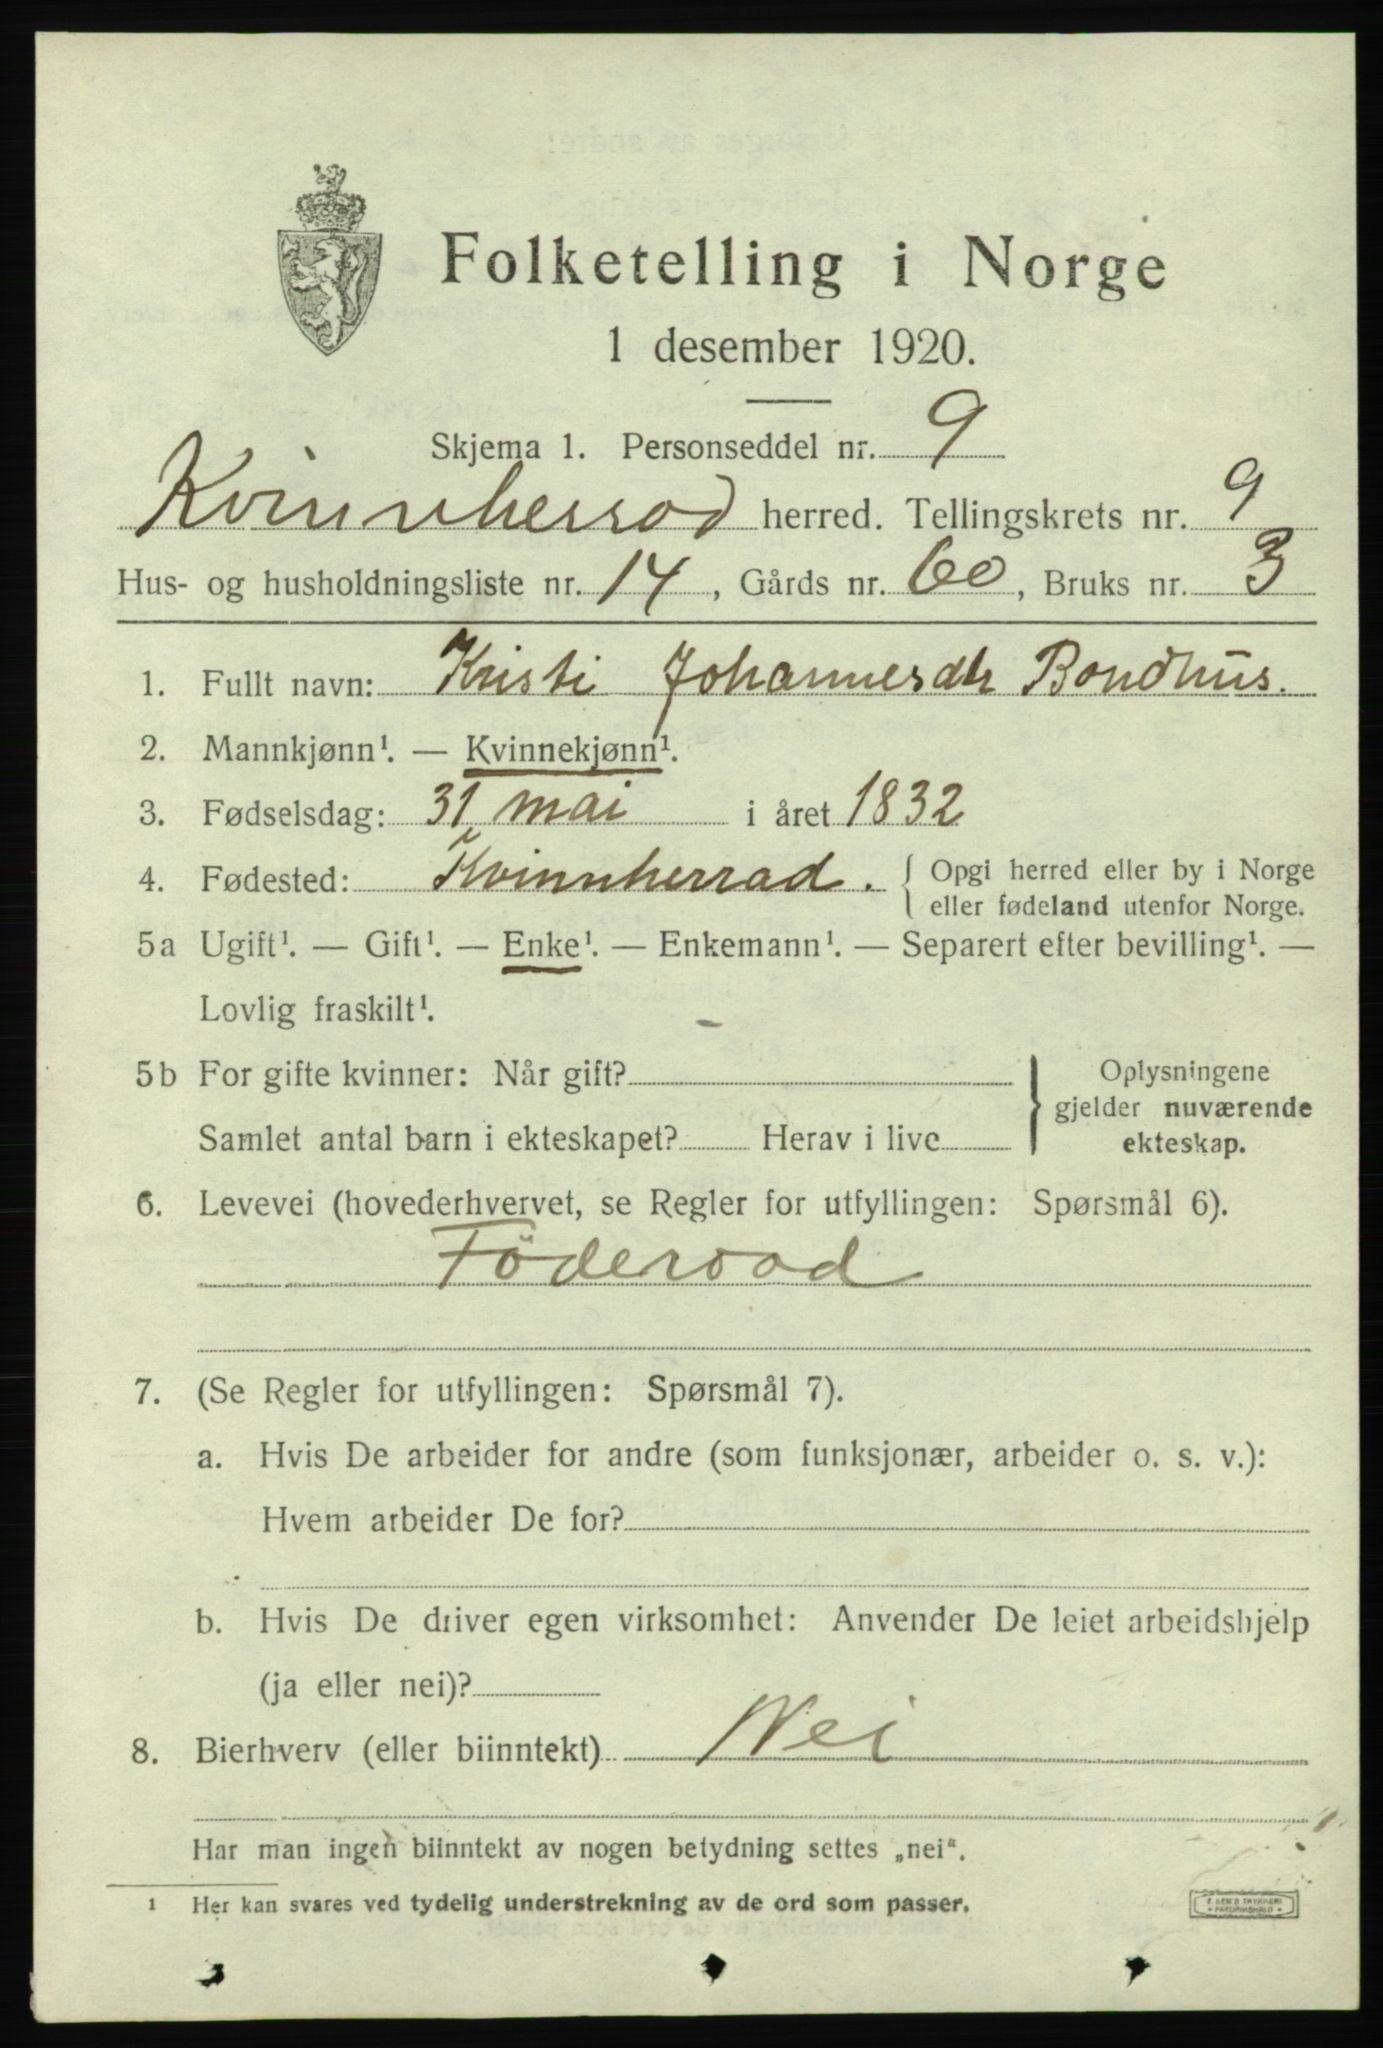 Folketelling i Norge
1 desember 1920.
Skjema 1. Personseddel nr. 9
Kvinnherrad herred. Tellingskrets nr. 9
Hus- og husholdningsliste nr. 14, Gårds nr. 60, Bruks nr. 3
1. Fullt navn: Kristi Johannesdtr Bondhus.
2. Mannkjønn¹. — Kvinnekjønn¹.
3. Fødselsdag: 31 mai i året 1832
4. Fødested: Kvinnherrad. { Opgi herred eller by i Norge
eller fødeland utenfor Norge.
5a Ugift¹. — Gift¹. — Enke¹. — Enkemann¹. — Separert efter bevilling¹. —
Lovlig fraskilt¹.
5b For gifte kvinner: Når gift?
Samlet antal barn i ekteskapet? Herav i live
} Oplysningene
gjelder nuværende
ekteskap.
6. Levevei (hovederhvervet, se Regler for utfyllingen: Spørsmål 6).
Föderaad
7. (Se Regler for utfyllingen: Spørsmål 7).
a. Hvis De arbeider for andre (som funksjonær, arbeider o. s. v.):
Hvem arbeider De for?
b. Hvis De driver egen virksomhet: Anvender De leiet arbeidshjelp
(ja eller nei)?
8. Bierhverv (eller biinntekt) Nei
Har man ingen biinntekt av nogen betydning settes „nei“.
¹ Her kan svares ved tydelig understrekning av de ord som passer.